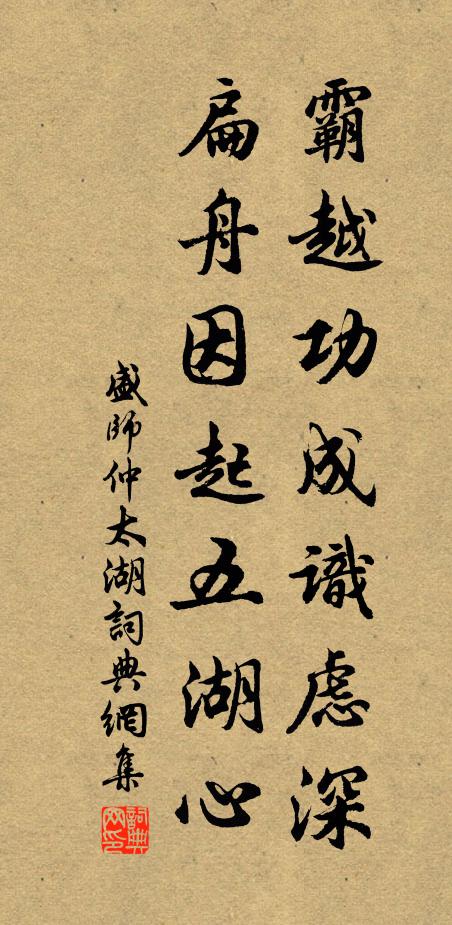 霸越功成識慮深
扁舟因起五湖心
盛師仲太湖詞典網集
詞典網印